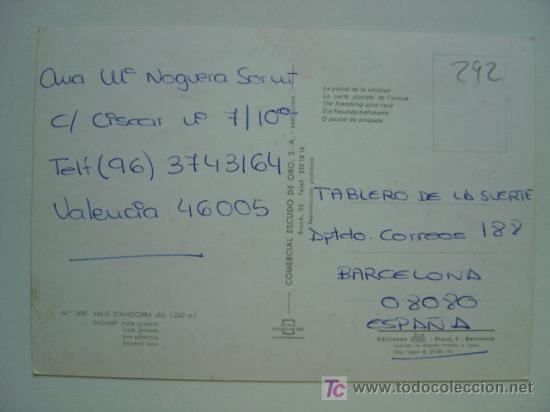 Ana Mª Noguera
C/ Ciscar nº 7/10º
Telf (96) 3743164
Valencia 46005
Nº 1499 VALLS D'ANDORRA (Alt. 1.260 m)
ENCAMP Vista general.
Vista general.
Vue générale.
General view.
COMERCIAL ESCUDO DE ORO, S. A.
Reproducción prohibida
292
La postal de la amistad
La carte postale de l'amitié
The friendship post card
Die Freundschaftskarte
O postal da amizade
TABLERO DE LA SUERTE
Aptdo. Correos 188
BARCELONA
08080
ESPAÑA
Ediciones
Barcelona
www.todocoleccion.net